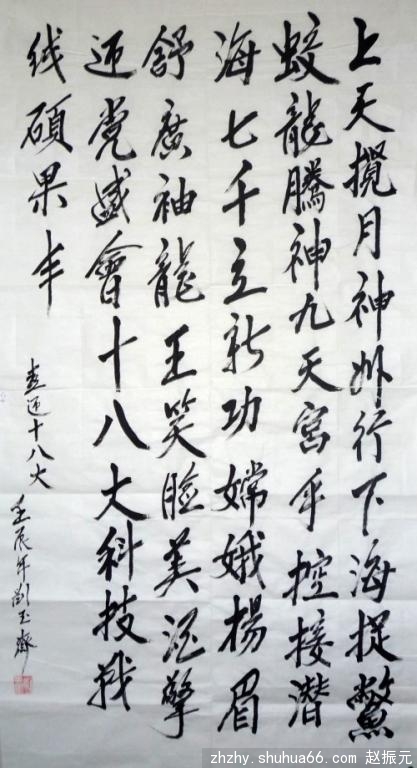 上天攬月神州行下海捉鱉
蛟龍騰神九天宮手控接潛
海七千立新功嫦娥揚眉
舒廣袖龍王笑臉美酒擎
迎党盛會十八大科技战
线碩果丰
喜迎十八大
壬辰年劉玉
zhzhy.shuhua66.com 赵振元